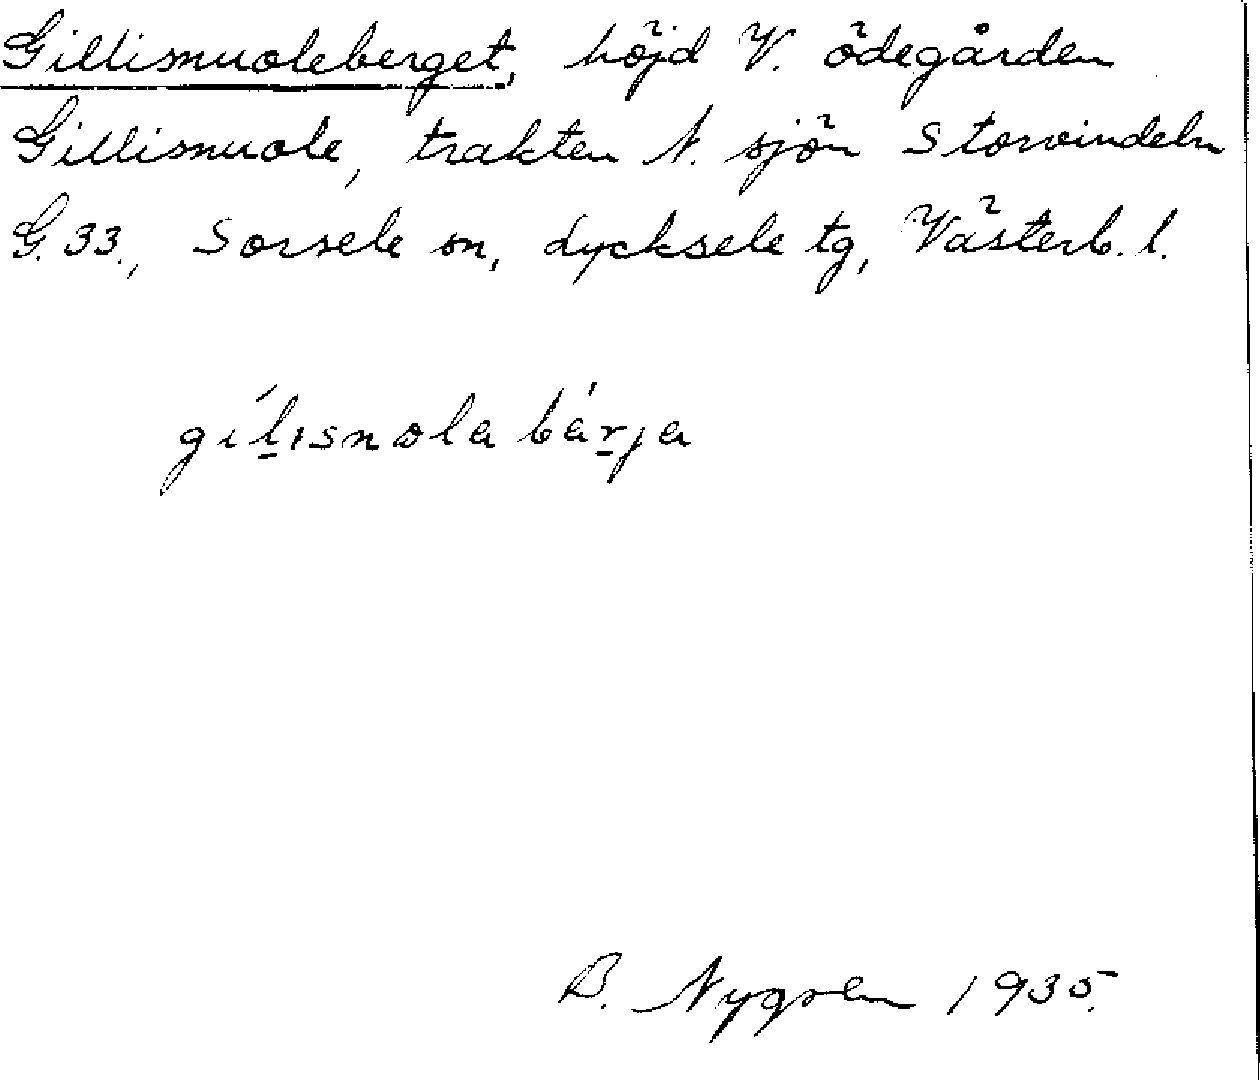 Gillisnuoleberget, höjd V. ödegården
Gillisnuole, trakten N. sjön Storvindeln
G. 33., Sorsele sn, Lycksele tg, Västerb. l.
gílısnola bárja
B. Nygren 1935.